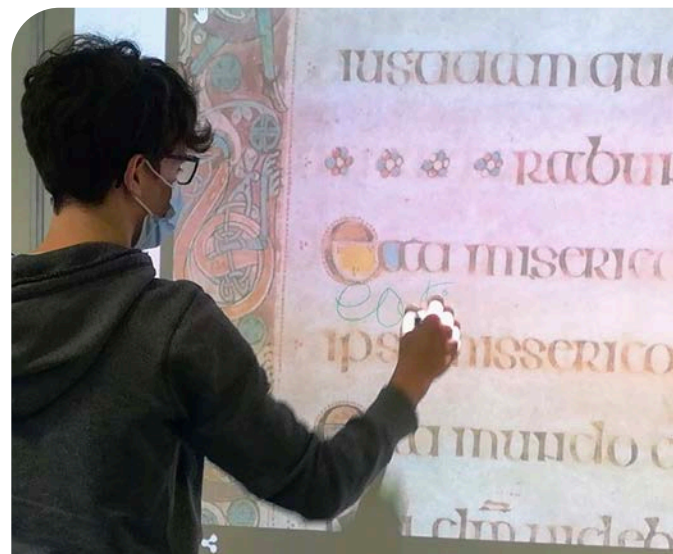 iustitiam quo
rabun
Beati miseric
eat
ips misserico
Beati mundo c
dm̄ uideb